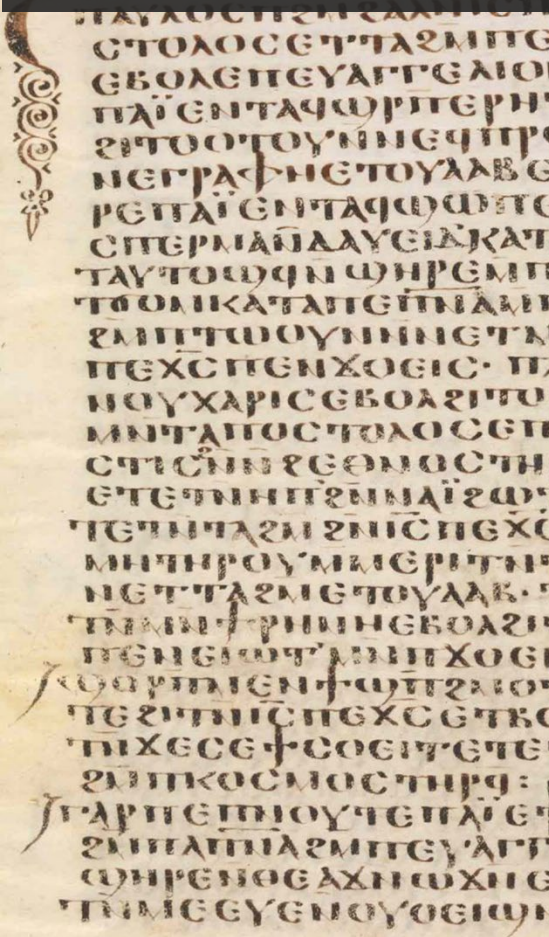 ⲡⲁⲩⲗⲟⲥ ⲡϩⲙϩⲁⲗ
ⲥⲧⲟⲗⲟⲥ ⲉⲧⲧⲁϩⲙ ⲡⲉ
ⲉⲃⲟⲗ ⲉⲡⲉⲩⲁⲅⲅⲉⲗⲓⲟ
ⲡⲁⲓ̈ ⲉⲛⲧⲁϥϣⲣⲡ ⲉⲣⲏ
ϩⲓⲧⲟⲟⲧⲟⲩ ⲛⲛⲉϥⲡⲣⲟ
ⲛⲉⲅⲣⲁⲫⲏ ⲉⲧⲟⲩⲁⲁⲃ ⲉ
ⲣⲉ ⲡⲁⲓ̈ ⲉⲛⲧⲁϥϣⲱⲡⲉ
ⲥⲡⲉⲣⲙⲁ ⲛ̄ⲇⲁⲩⲉⲓⲇ ⲕⲁⲧ
ⲧⲁⲩⲧⲟϣϥ ⲛϣⲏⲣⲉ ⲙⲡ
ϭⲟⲙ ⲕⲁⲧⲁ ⲡⲉⲡ̅ⲛ̅ⲁ̅
ϩⲙ ⲡⲧⲱⲟⲩⲛ ⲛⲛⲉⲧⲙ
ⲡⲉⲭ̅ⲥ̅ ⲡⲉⲛϫⲟⲉⲓⲥ· ⲡⲁ
ⲛⲟⲩⲭⲁⲣⲓⲥ ⲉⲃⲟⲗ ϩⲓⲧⲟ
ⲙⲛⲧⲁⲡⲟⲥⲧⲟⲗⲟⲥ ⲉⲡ
ⲥⲧⲓⲥ ϩⲛ ⲛϩⲉⲑⲛⲟⲥ ⲧⲏ
ⲉⲧⲉⲧⲛⲏⲡ ϩⲛⲛⲁⲓ̈ ϩⲱⲧ
ⲧⲉⲧⲛⲧⲁϩⲙ ϩⲛ ⲓ̅ⲥ̅ ⲡⲉⲭ̅ⲥ̅
ⲙⲏ ⲧⲏⲣⲟⲩ ⲙⲙⲉⲣⲓⲧ ⲛ
ⲛⲉⲧⲧⲁϩⲙ ⲉⲧⲟⲩⲁⲁⲃ· ⲧ
ⲧⲛ ⲙⲛ ϯⲣⲏⲛⲏ ⲉⲃⲟⲗ ϩⲓ
ⲡⲉⲛⲉⲓⲱⲧ ⲙⲛ ⲡϫⲟⲉⲓ
ϣⲟⲣⲡ ⲙⲉⲛ ϯϣⲡϩⲙⲟ
ⲧⲉ ϩⲓⲧⲛ ⲓ̅ⲥ̅ ⲡⲉⲭ̅ⲥ̅ ⲉⲧⲃⲉ
ⲧⲛ ϫⲉ ⲥⲉϯⲥⲟⲉⲓⲧ ⲉⲧⲉ
ϩⲙ ⲡⲕⲟⲥⲙⲟⲥ ⲧⲏⲣϥ:
ⲅⲁⲣ ⲡⲉ ⲡⲛⲟⲩⲧⲉ ⲡⲁⲓ̈ ⲉ
ϩⲙ ⲡⲁⲡ̅ⲛ̅ⲁ̅ ϩⲙ ⲡⲉⲩⲁⲅⲅ
ϣⲏⲣⲉ ⲛⲑⲉ ⲁϫⲛ ⲱϫⲛ ⲉ
ⲧⲛⲙⲉⲉⲩⲉ ⲛⲟⲩⲟⲉⲓϣ ⲛ